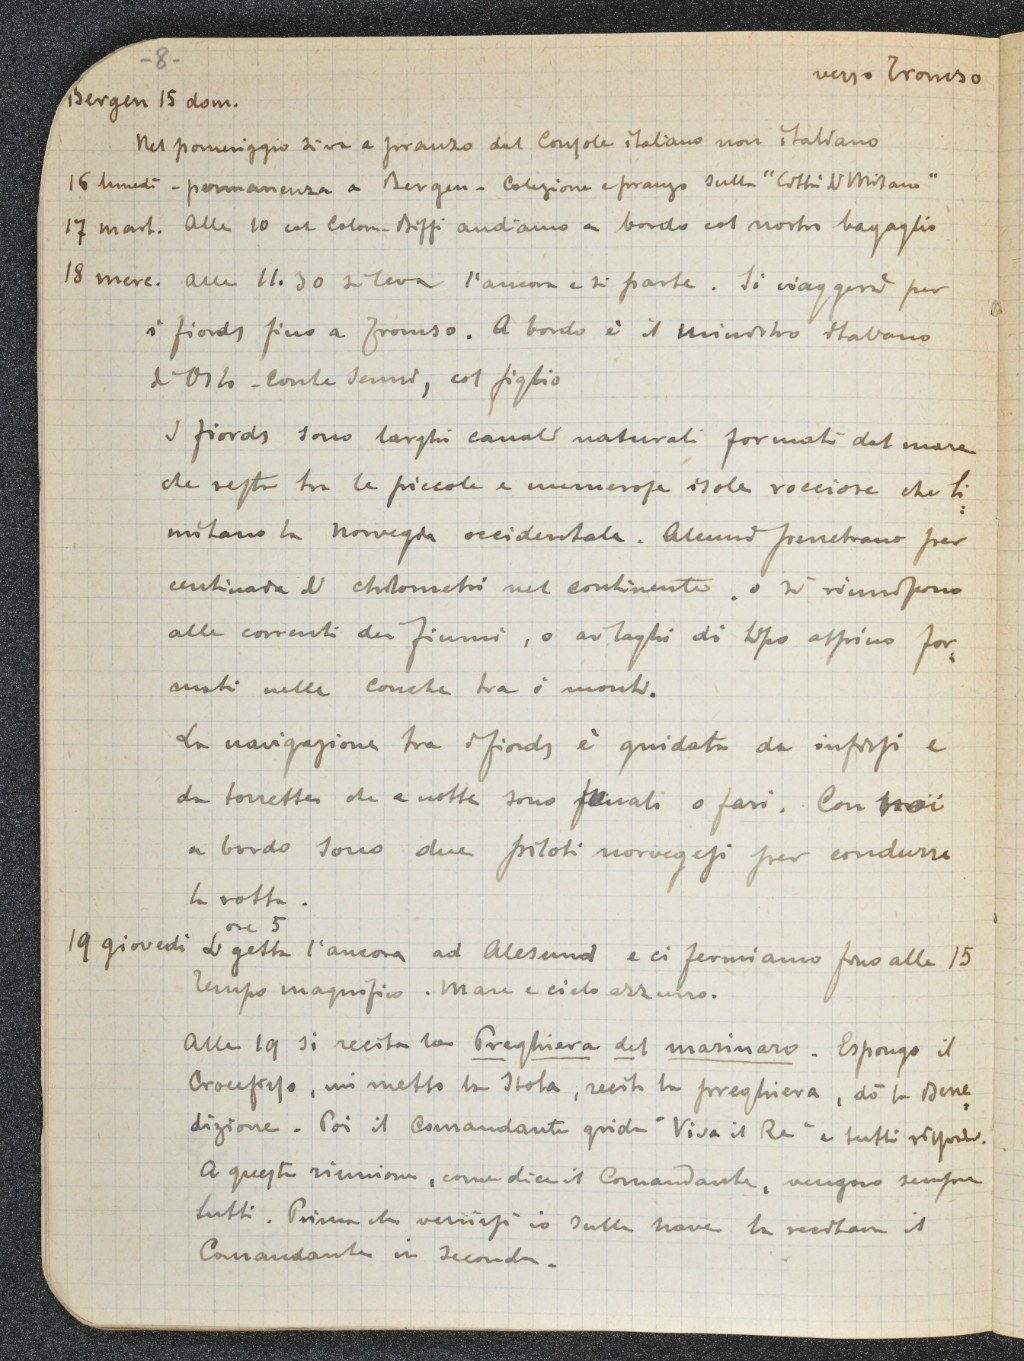 -8-
verso Tromso
Bergen 15 dom.
Nel pomeriggio si va a pranzo dal Console italiano non italiano
16 lunedì - permanenza a Bergen - Colazione e pranzo sulla "Città di Milano"
17 mart. Alle 10 col Colon. Biffi andiamo a bordo col nostro bagaglio
18 merc. alle 11.30 si leva l'ancora e si parte. Si viaggerà per
i fiords fino a Tromso. A bordo è il ministro italiano
di Oslo - Conte Senni, col figlio
I fiords sono larghi canali naturali formati dal mare
che resta tra le piccole e numerose isole rocciose che li=
mitano la Norvegia occidentale. Alcuni penetrano per
centinaia di chilometri nel continente, o si riuniscono
alle correnti dei fiumi, o ai laghi di tipo alpino for=
mati nelle conche tra i monti.
La navigazione tra i fiords è guidata da infissi e
da torrette che a notte sono fanali o fari. Con noi
a bordo sono due piloti norvegesi per condurre
la rotta.
ore 5
19 giovedì Si getta l'ancora ad Alesund e ci fermiamo fino alle 15
Tempo magnifico. Mare e cielo azzurro.
Alle 19 si recita la Preghiera del marinaro. Espongo il
Crocefisso, mi metto la Stola, recito la preghiera, dò la Bene=
dizione. Poi il Comandante grida "Viva il Re" e tutti rispond.
A questa riunione, come dice il Comandante, vengono sempre
tutti. Prima che venissi io sulla nave la recitava il
Comandante in seconda.